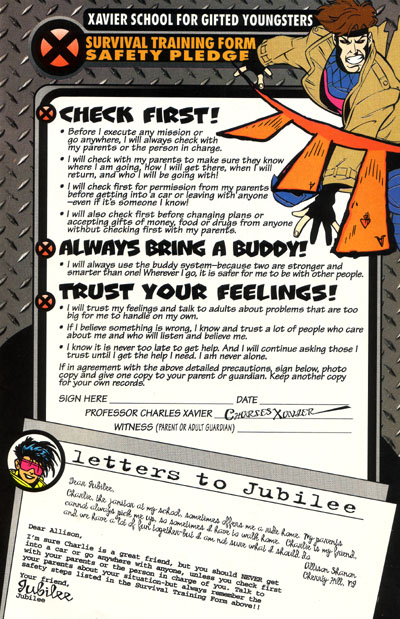 XAVIER SCHOOL FOR GIFTED YOUNGSTERS
SURVIVAL TRAINING FORM
SAFETY PLEDGE
CHECK FIRST!
• Before I execute any mission or
go anywhere, I will always check with
my parents or the person in charge.
• I will check with my parents to make sure they know
where I am going, how I will get there, when I will
return, and who I will be going with!
• I will check first for permission from my parents
before getting into a car or leaving with anyone
—even if it's someone I know!
• I will also check first before changing plans or
accepting gifts of money, food or drugs from anyone
without checking first with my parents.
ALWAYS BRING A BUDDY!
• I will always use the buddy system—because two are stronger and
smarter than one! Wherever I go, it is safer for me to be with other people.
TRUST YOUR FEELINGS!
• I will trust my feelings and talk to adults about problems that are too
big for me to handle on my own.
• If I believe something is wrong, I know and trust a lot of people who care
about me and who will listen and believe me.
• I know it is never too late to get help. And I will continue asking those I
trust until I get the help I need. I am never alone.
If in agreement with the above detailed precautions, sign below, photo
copy and give one copy to your parent or guardian. Keep another copy
for your own records.
SIGN HERE DATE
PROFESSOR CHARLES XAVIER Charles Xavier
WITNESS (PARENT OR ADULT GUARDIAN)
letters to Jubilee
Dear Jubilee,
Charlie, the janitor at my school, sometimes offers me a ride home. My parents
cannot always pick me up, so sometimes I have to walk home. Charlie is my friend,
and we have a lot of fun together–but I am not sure what I should do.
Allison Sharon
Cherry Hill, NJ
Dear Allison,
I'm sure Charlie is a great friend, but you should NEVER get
into a car or go anywhere with anyone, unless you check first
with your parents or the person in charge of you. Talk to
your parents about your situation-but always remember the
safety steps listed in the Survival Training Form above!!
Your friend,
Jubilee
Jubilee